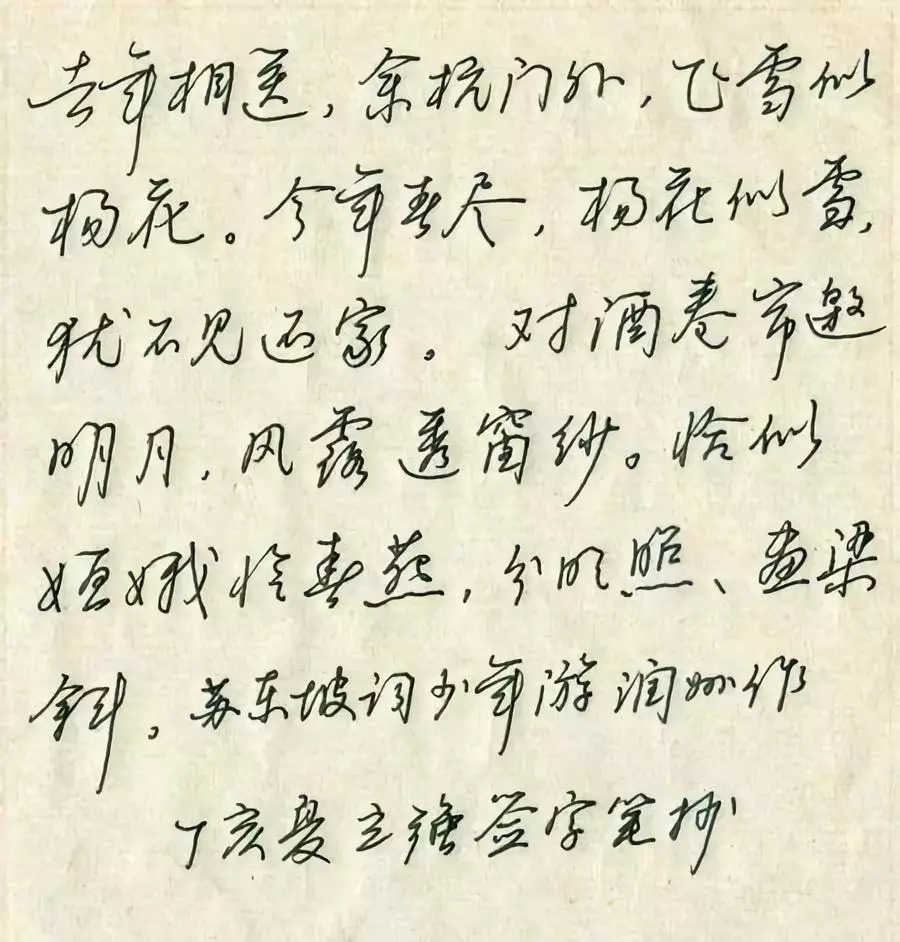 去年相送，余杭门外，飞雪似
杨花。今年春尽，杨花似雪，
犹不见还家。 对酒卷帘邀
明月，风露透窗纱。恰似
姮娥怜春燕，分明照、画梁
斜。苏东坡词少年游润州作
丁亥夏立强签字笔抄